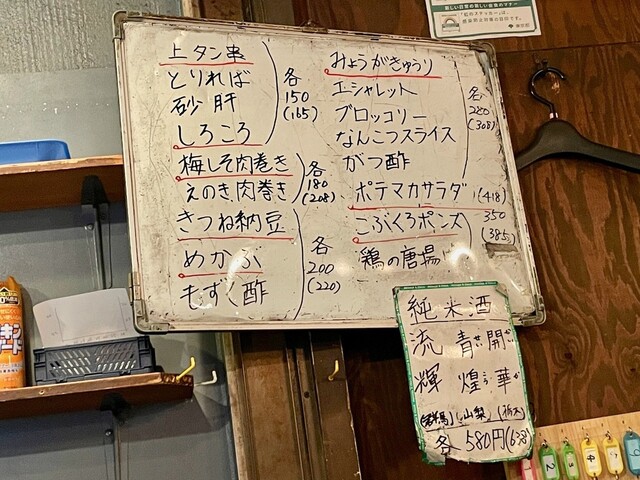 上タン串
とりればー
砂肝
しろころ
各
150
(165)
梅しそ肉巻き
えのき肉巻き
各
180
(208)
きつね納豆
めかぶ
もずく酢
各
200
(220)
みょうがきゅうり
エシャレット
ブロッコリー
なんこつスライス
がつ酢
各
280
(308)
ポテマカサラダ
(418)
こぶくろポンズ
350
(385)
鶏の唐揚
純米酒
流 青 開
輝 煌 華
(群馬) (山梨) (栃木)
各 580円(638)